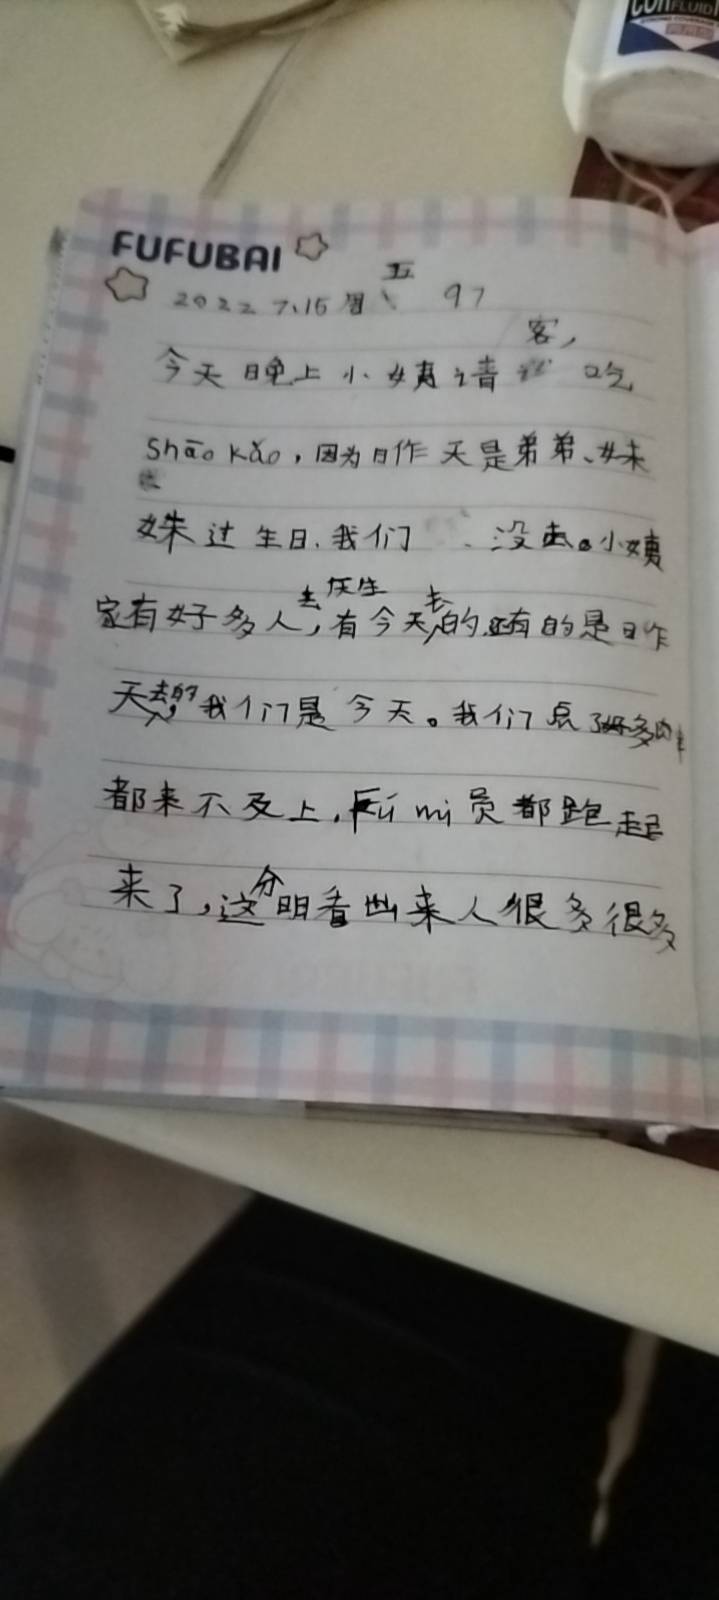 FLUID
FUFUBAI
2022 7.15 周五 97
今天晚上小姨请客，吃
shāo kǎo，因为昨天是弟弟、妹
妹过生日.我们 没去。小姨
家有好多人，有今天去的.还有的是昨
天去的，我们是今天。我们点了好多肉串
都来不及上，fú mì 员都跑起
来了，这分明看出来人很多很多